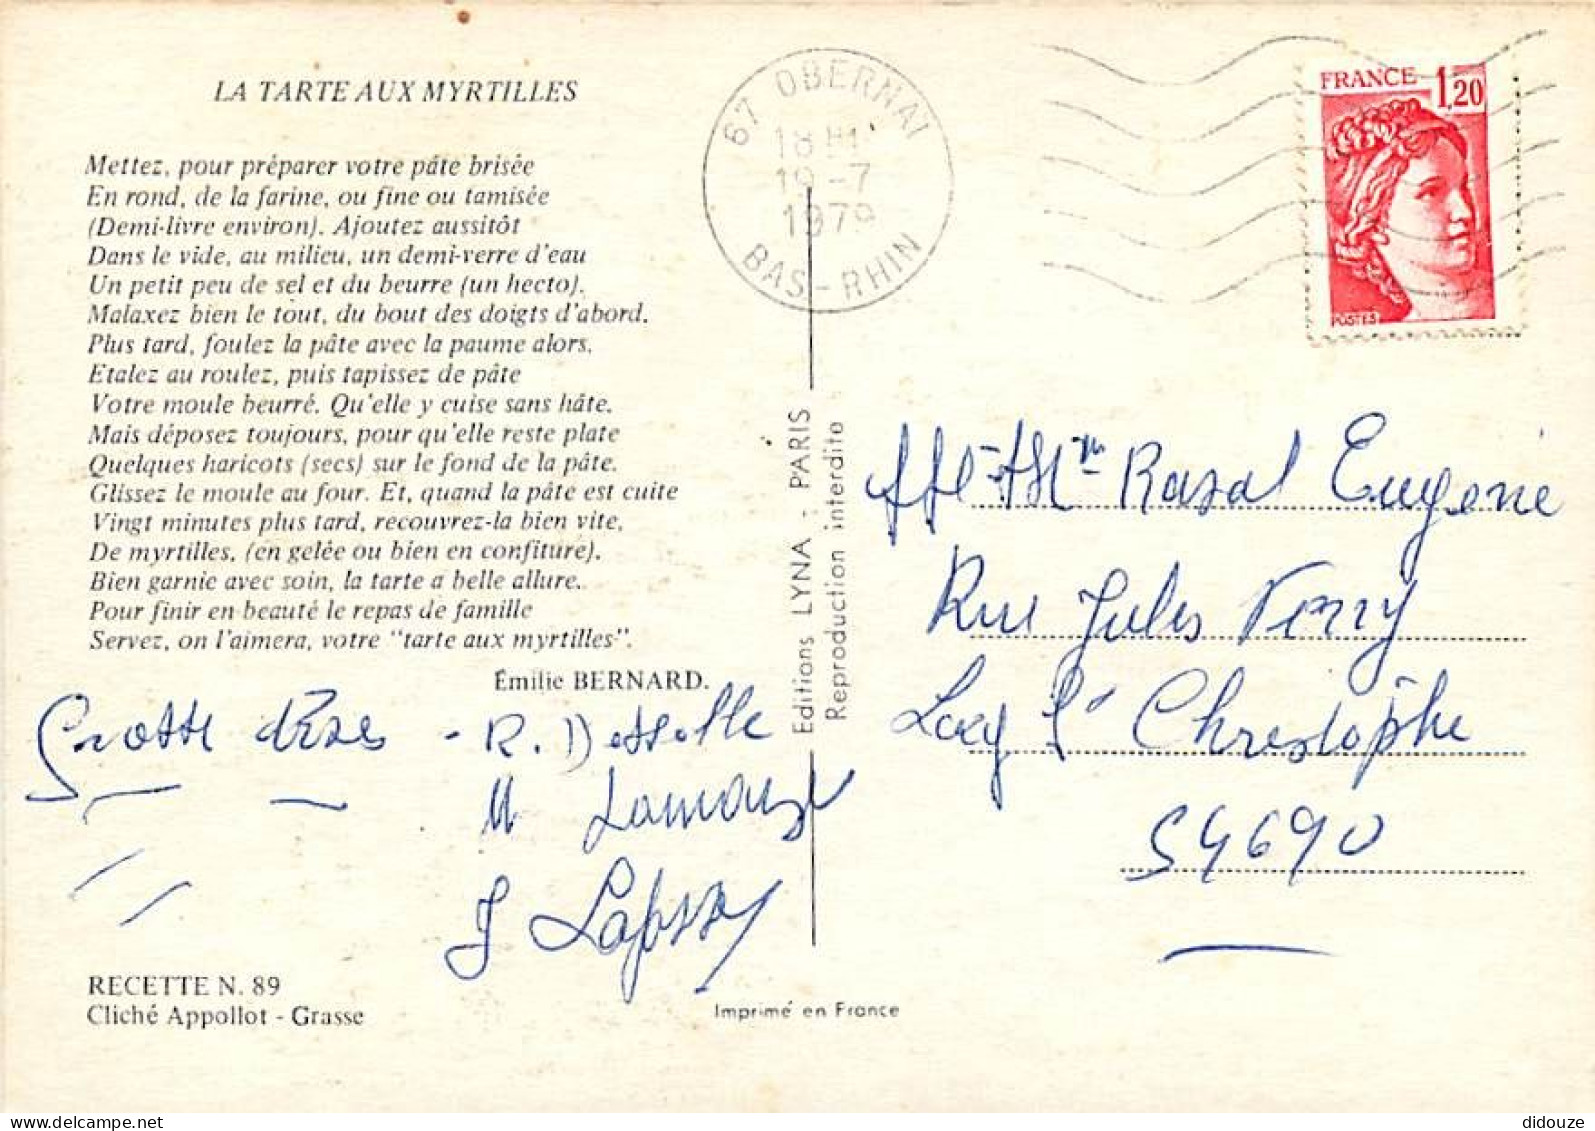 LA TARTE AUX MYRTILLES
Mettez, pour préparer votre pâte brisée
En rond, de la farine, ou fine ou tamisée
(Demi-livre environ). Ajoutez aussitôt
Dans le vide, au milieu, un demi-verre d'eau
Un petit peu de sel et du beurre (un hecto).
Malaxez bien le tout, du bout des doigts d'abord.
Plus tard, foulez la pâte avec la paume alors.
Etalez au roulez, puis tapissez de pâte
Votre moule beurré. Qu'elle y cuise sans hâte.
Mais déposez toujours, pour qu'elle reste plate
Quelques haricots (secs) sur le fond de la pâte.
Glissez le moule au four. Et, quand la pâte est cuite
Vingt minutes plus tard, recouvrez-la bien vite,
De myrtilles, (en gelée ou bien en confiture).
Bien garnie avec soin, la tarte a belle allure.
Pour finir en beauté le repas de famille
Servez, on l'aimera, votre "tarte aux myrtilles".
Émilie BERNARD.
R.
J
RECETTE N. 89
Cliché Appollot - Grasse
Editions LYNA - PARIS
Reproduction interdite
Imprimé en France
67 OBERNAI
18 H
19 -7
1979
BAS-RHIN
FRANCE 1,20
POSTES
Eugene
Rue Jules Ferry
Lay St Christophe
54690
didouze